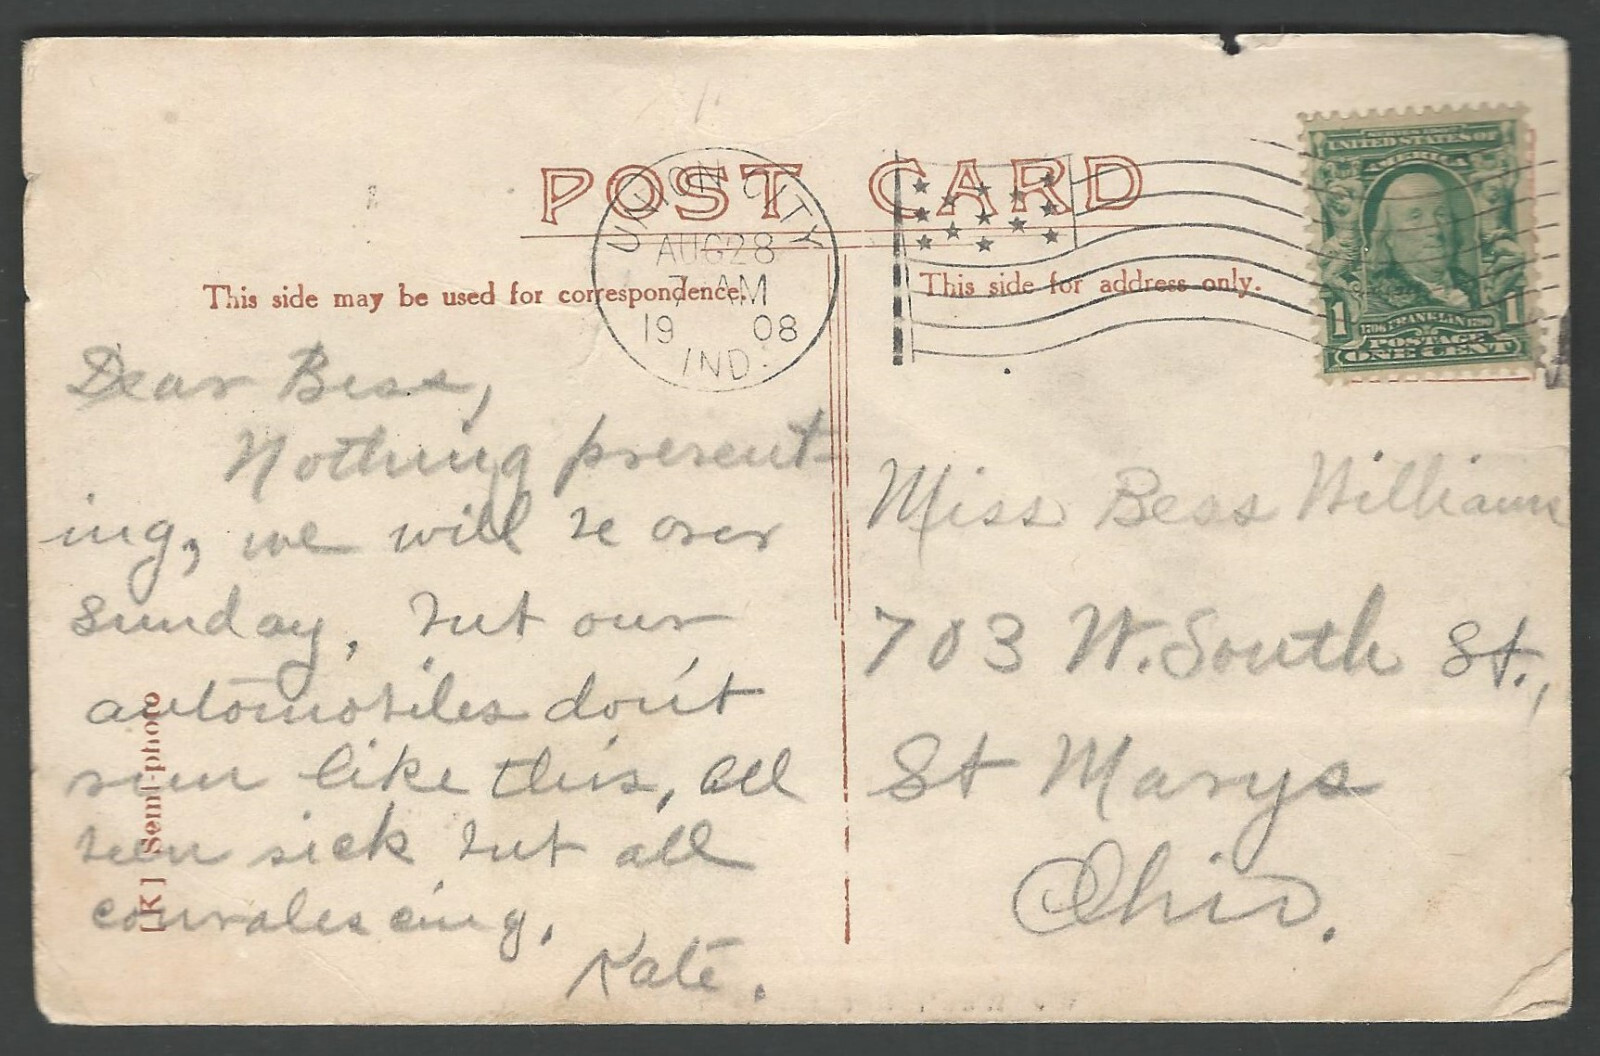 POST CARD
UNION CITY
AUG 28
7 AM
19 08
IND.
This side may be used for correspondence.
This side for address only.
SERIES 1902
UNITED STATES OF
AMERICA
1 1
1706 FRANKLIN 1790
POSTAGE
ONE CENT
Dear Bess,
Nothing present-
ing, we will be over
Sunday, but our
automobiles don't
run like this, all
been sick but all
convalescing.
Kate.
[K] Semi-photo
Miss Bess Williams
703 W. South St.,
St Marys
Ohio.